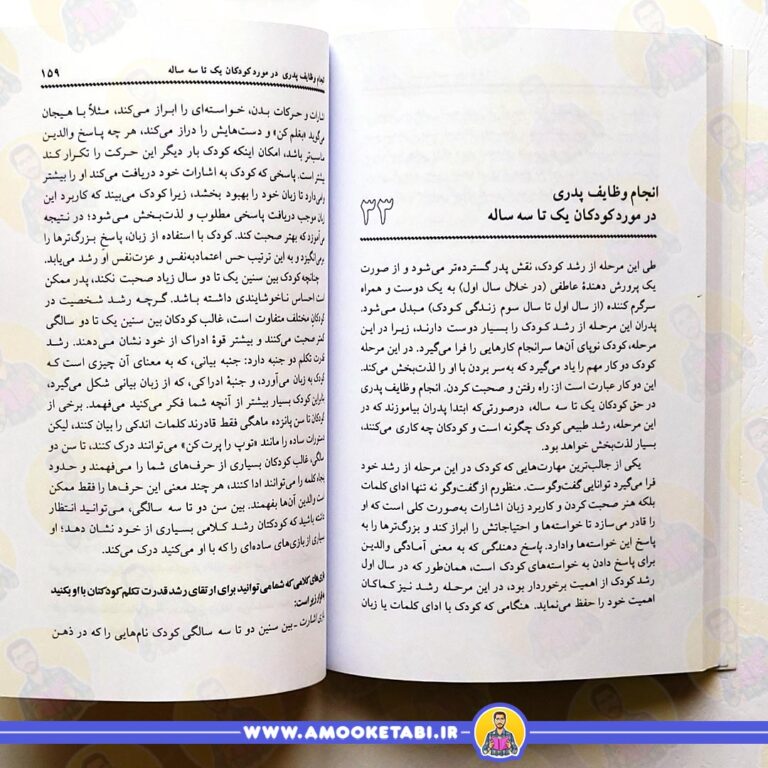 ۳۳
انجام وظایف پدری
در مورد کودکان یک تا سه ساله
طی این مرحله از رشد کودک، نقش پدر گسترده‌تر می‌شود و از صورت
یک پرورش دهندهٔ عاطفی (در خلال سال اول) به یک دوست و همراه
سرگرم کننده (از سال اول تا سال سوم زندگی کودک) مبدل می‌شود.
پدران این مرحله از رشد کودک را بسیار دوست دارند، زیرا در این
مرحله، کودک نوپای آن‌ها سرانجام کارهایی را فرا می‌گیرد. در این مرحله
کودک دو کار مهم را یاد می‌گیرد که به‌سر بردن با او را لذت‌بخش می‌کند.
این دو کار عبارت است از: راه رفتن و صحبت کردن. انجام وظایف پدری
در حق کودکان یک تا سه ساله، درصورتی‌که ابتدا پدران بیاموزند که در
این مرحله، رشد طبیعی کودک چگونه است و کودکان چه کاری می‌کنند،
بسیار لذت‌بخش خواهد بود.
یکی از جالب‌ترین مهارت‌هایی که کودک در این مرحله از رشد خود
فرا می‌گیرد توانایی گفت‌وگوست. منظورم از گفت‌وگو نه تنها ادای کلمات
بلکه هنر صحبت کردن و کاربرد زبان اشارات به‌صورت کلی است که او
را قادر می‌سازد تا خواسته‌ها و احتیاجاتش را ابراز کند و بزرگ‌ترها را به
پاسخ این خواسته‌ها وادارد. پاسخ دهندگی که به معنی آمادگی والدین
برای پاسخ دادن به خواسته‌های کودک است، همان‌طور که در سال اول
رشد کودک از اهمیت برخوردار بود، در این مرحله رشد نیز کماکان
اهمیت خود را حفظ می‌نماید. هنگامی که کودک با ادای کلمات یا زبان
انجام وظایف پدری در مورد کودکان یک تا سه ساله ۱۵۹
اشارات و حرکات بدن، خواسته‌ای را ابراز می‌کند، مثلاً با هیجان
می‌گوید «بغلم کن» و دست‌هایش را دراز می‌کند، هر چه پاسخ والدین
مناسب‌تر باشد، امکان اینکه کودک بار دیگر این حرکت را تکرار کند
بیشتر است. پاسخی که کودک به اشارات خود دریافت می‌کند او را بیشتر
وامی‌دارد تا زبان خود را بهبود بخشد، زیرا کودک می‌بیند که کاربرد این
زبان موجب دریافت پاسخی مطلوب و لذت‌بخش می‌شود؛ در نتیجه
می‌آموزد که بهتر صحبت کند. کودک با استفاده از زبان، پاسخ بزرگ‌ترها را
برمی‌انگیزد و به این ترتیب حس اعتمادبه‌نفس و عزت‌نفس او رشد می‌یابد.
چنانچه کودک بین سنین یک تا دو سال زیاد صحبت نکند، پدر ممکن
است احساس ناخوشایندی داشته باشد. گرچه رشد شخصیت در
کودکان مختلف متفاوت است، غالب کودکان بین سنین یک تا دو سالگی
کمتر صحبت می‌کنند و بیشتر قوهٔ ادراک از خود نشان می‌دهند. رشد
قدرت تکلم دو جنبه دارد: جنبه بیانی، که به معنای آن چیزی است که
کودک به زبان می‌آورد، و جنبهٔ ادراکی، که از زبان بیانی شکل می‌گیرد،
بنابراین کودک بسیار بیشتر از آنچه شما فکر می‌کنید می‌فهمد. برخی از
کودکان تا سن پانزده ماهگی فقط قادرند کلمات اندکی را بیان کنند، لیکن
دستورات ساده را مانند «توپ را پرت کن» می‌توانند درک کنند، تا سن دو
سالگی، غالب کودکان بسیاری از حرف‌های شما را می‌فهمند و حدود
پنجاه کلمه را می‌توانند ادا کنند، هر چند معنی این حرف‌ها را فقط ممکن
است والدین آن‌ها بفهمند. بین سن دو تا سه سالگی، می‌توانید انتظار
داشته باشید که کودکتان رشد کلامی بسیاری از خود نشان دهد؛ او
بسیاری از بازی‌های ساده‌ای را که با او می‌کنید درک می‌کند.
بازی‌های کلامی که شما می‌توانید برای ارتقای رشد قدرت تکلم کودکتان با او بکنید
به‌قرار زیر است:
بازی اشارت ـ بین سنین دو تا سه سالگی کودک نام‌هایی را که در ذهن
WWW.AMOOKETABI.IR